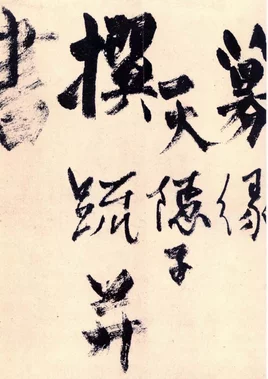 募緣
天隱子
撰疏并
書